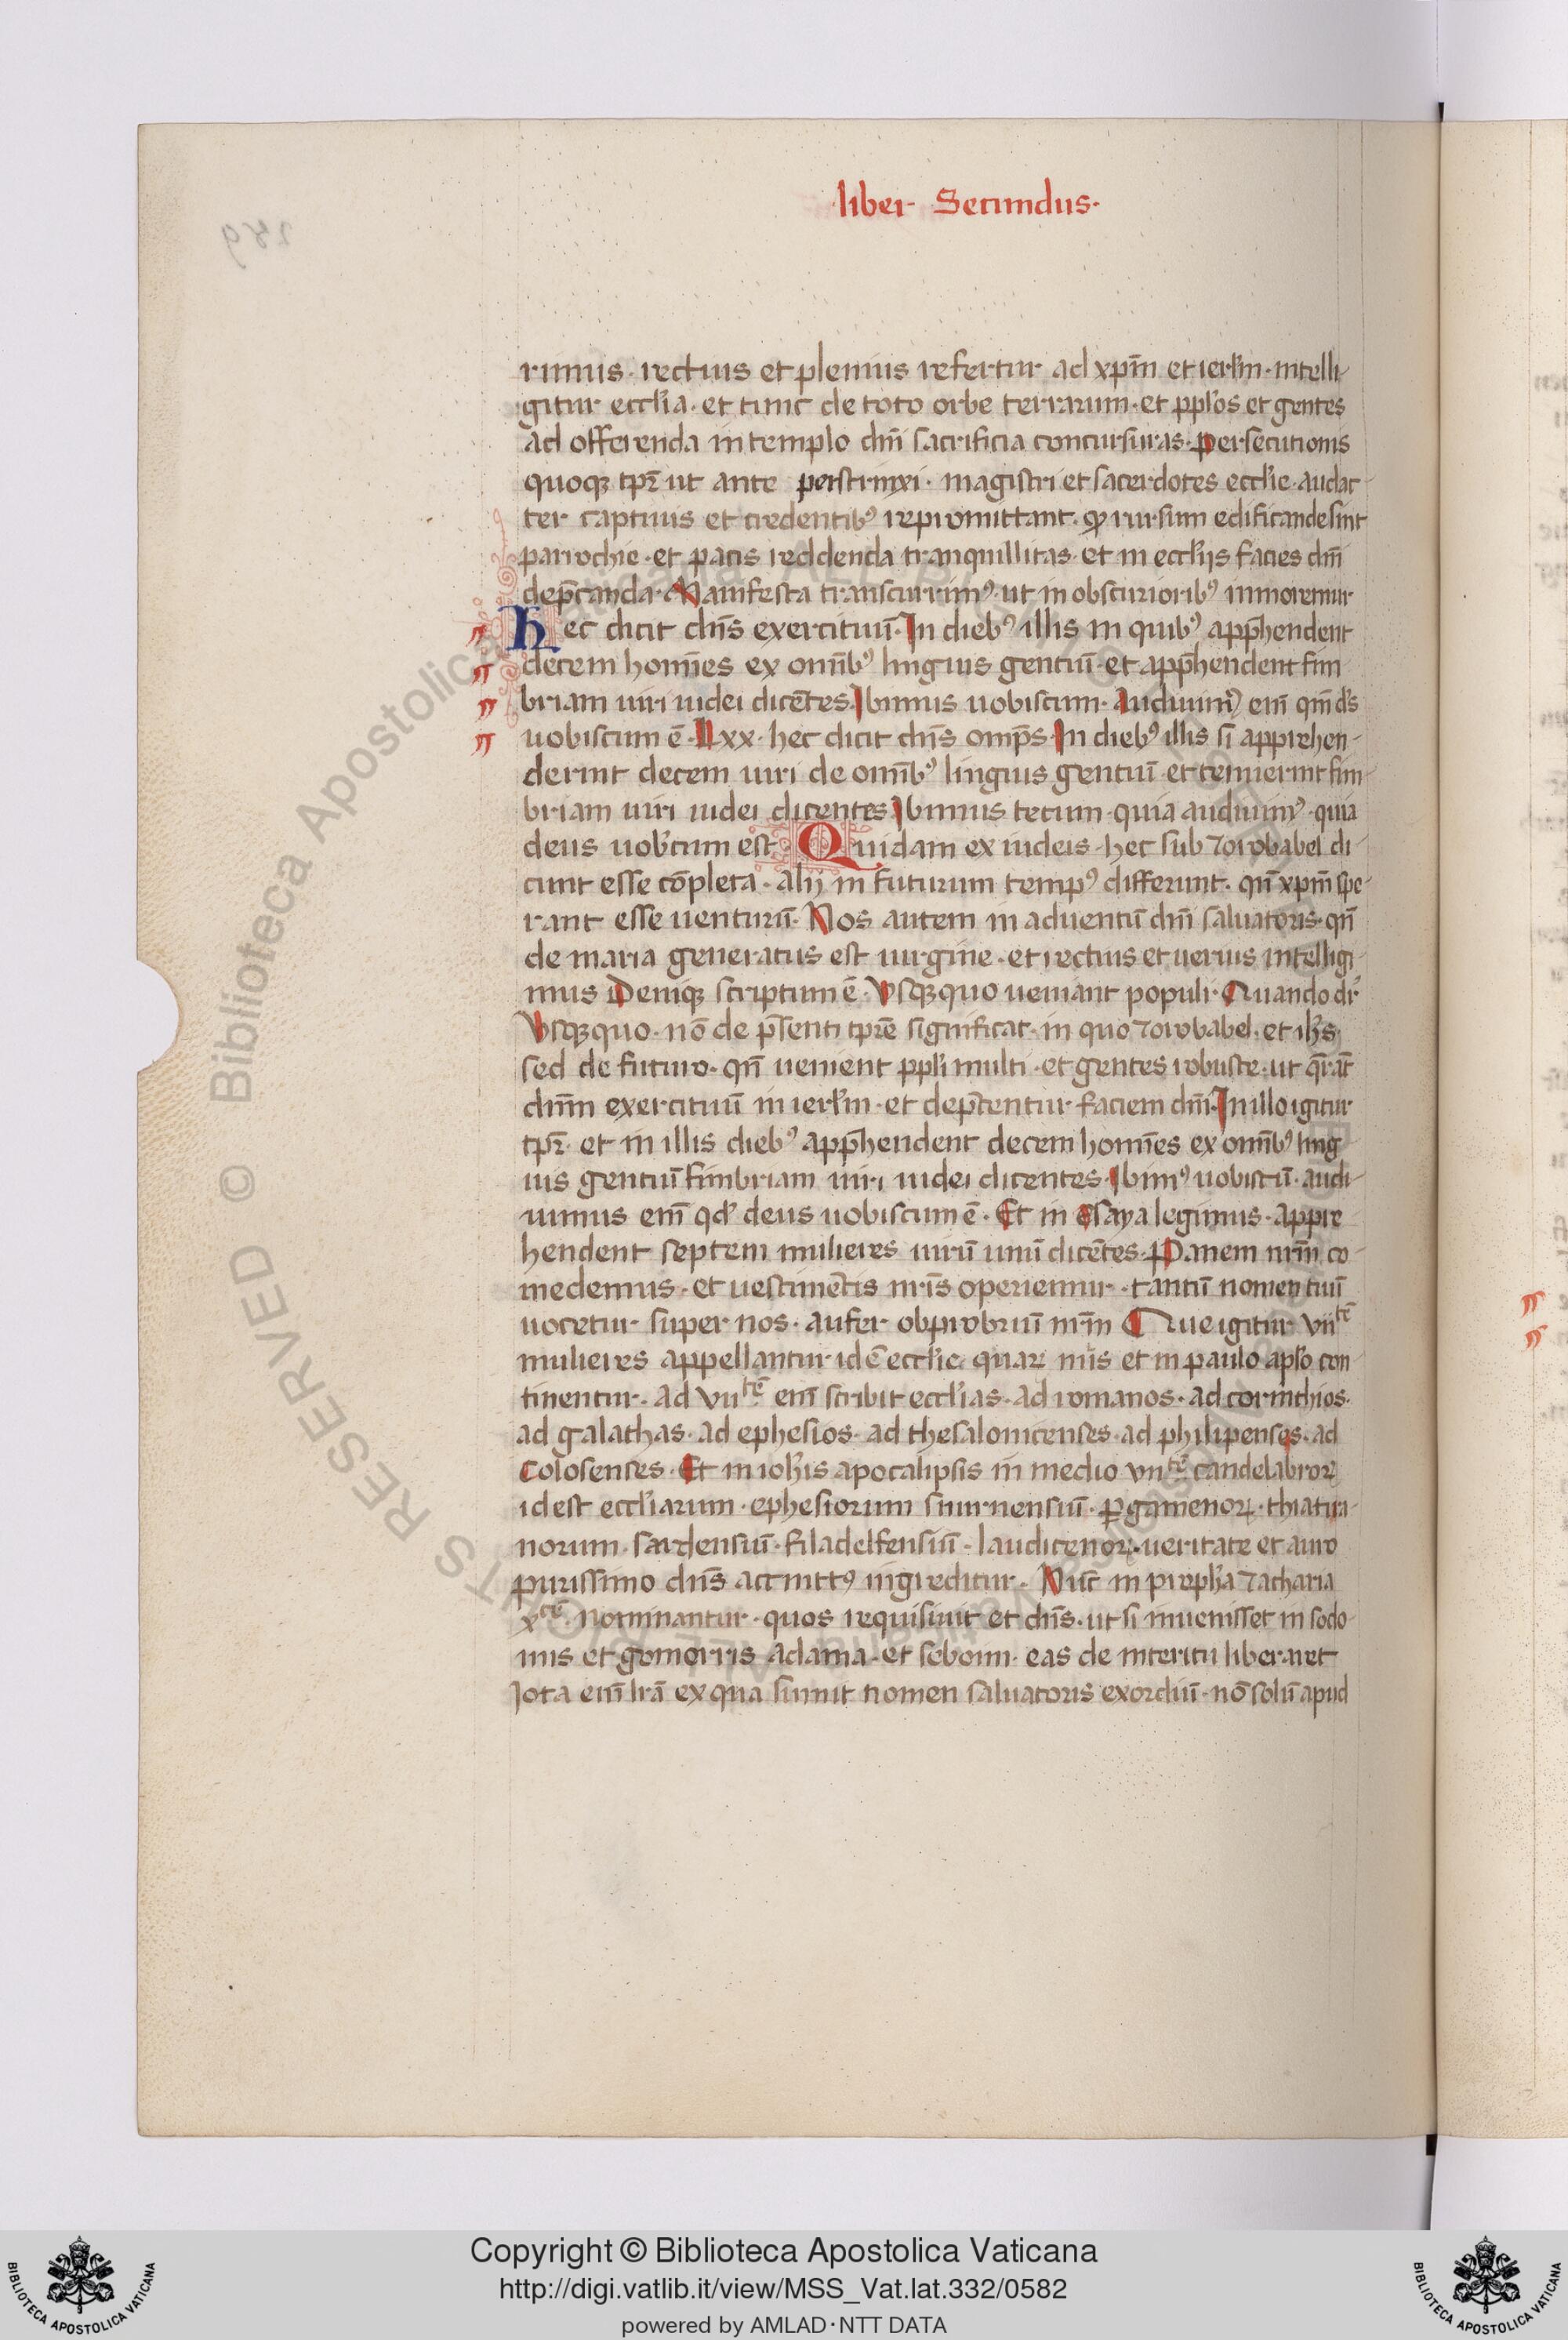 liber Secundus.
rimus. rectius et plenius refertur ad xp̄m et ierl̄m. intelli-
gitur eccl̄ia. et tunc de toto orbe terrarum. et ppl̄os et gentes
ad offerenda in templo dn̄i sacrificia concursuras. Persecutionis
quoqꝫ tp̄r ut ante perstrinxi. magistri et sacerdotes eccl̄ie. audac-
ter captiuis et credentibꝰ repromittant. ꝙ rursum edificande sint
parrochie. et pacis reddenda tranquillitas. et in eccl̄ijs facies dn̄i
dep̄canda. Manifesta transcurrimꝰ. ut in obscurioribꝰ inmoremur
Hec dicit dn̄s exercituū. In diebꝰ illis in quibꝰ app̄hendent
decem homīes ex omībꝰ linguis gentiū. et app̄hendent fim
briam uiri iudei dicētes. Ibimus uobiscum. Audiuimꝰ em̄ qm̄ ds̄
uobiscum ē. Lxx. hec dicit dn̄s omp̄s. In diebꝰ illis si apprehen-
derint decem uiri de omībꝰ linguis gentiū. et tenuerint fim-
briam uiri iudei dicentes. Ibimus tecum. quia audiuimꝰ. quia
deus uobcum est. Quidam ex iudeis. hec sub zorobabel di-
cunt esse cōpleta. alij in futurum tempꝰ differunt. qn̄ xp̄m spe-
rant esse uenturū. Nos autem in aduentū dn̄i saluatoris. qn̄
de maria generatus est uirgine. et rectius et uerius intelligi-
mus. Deniqꝫ scriptum ē. Vsqꝫquo ueniant populi. Quando dr̄
Vsqꝫquo. nō de p̄senti tp̄re significat. in quo zorobabel. et ih̄s.
sed de futuro. qn̄ uenient ppl̄i multi. et gentes robuste. ut q̄rāt
dnm̄ exercituū in ierl̄m. et dep̄centur faciem dn̄i. In illo igitur
tp̄r. et in illis diebꝰ app̄hendent decem homīes ex omībꝰ ling
uis gentiū fimbriam uiri iudei dicentes. Ibimꝰ uobiscū. audi-
uimus em̄ qd̓ deus uobiscum ē. Et in esaya legimus. appre
hendent septem mulieres uirū unū dicētes. Panem nrm̄ co-
medemus. et uestimētis nr̄is operiemur. tantū nomen tuū
uocetur super nos. aufer obprobriuū nrm̄. Que igitur vij tē
mulieres appellantur idē eccl̄ie. quaꝝ nu̅s et in paulo apl̄o con-
tinentur. ad vij tē em̄ scribit eccl̄ias. ad romanos. ad corinthios.
ad galathas. ad ephesios. ad thesalonicenses. ad philipenses. ad
Colosenses. Et in ioh̄is apocalipsis in medio vij tē candelabroꝝ
id est eccl̄iarum. ephesiorum smirnensiū. ꝑgamenoꝝ. thiatira-
norum. sardensiū. filadelfensiū. laudicenoꝝ. ueritate et auro
purissimo dn̄s accinctꝰ ingreditur. Nūc in propħa zacharia
xcē. nominantur. quos requisiuit et dn̄s. ut si inuenisset in sodo-
mis et gomorris adama. et seboim. eas de interitu liberaret
Iota eni̅ lr̄a ex qua sumit nomen saluatoris exordiū. nō solū apud
Biblioteca Apostolica
© RESERVED
Copyright © Biblioteca Apostolica Vaticana
http://digi.vatlib.it/view/MSS_Vat.lat.332/0582
powered by AMLAD·NTT DATA
BIBLIOTECA APOSTOLICA VATICANA
BIBLIOTECA APOSTOLICA VATICANA